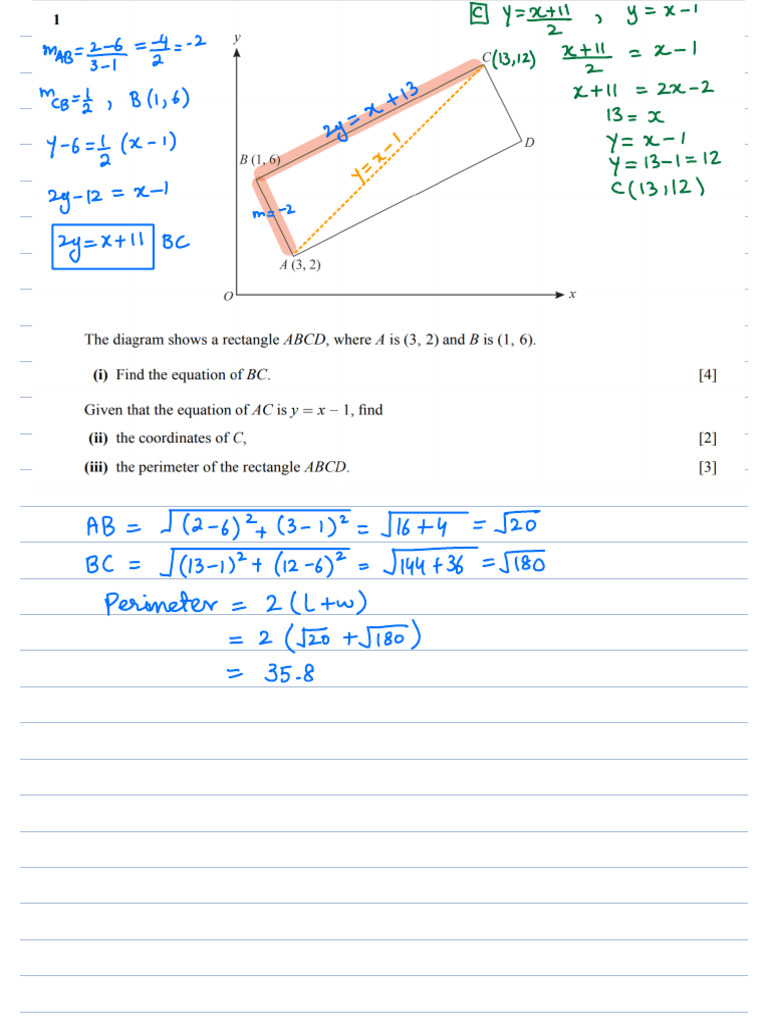 1
m_AB = (2-6)/(3-1) = -4/2 = -2
m_CB = 1/2 , B(1,6)
y-6 = 1/2 (x-1)
2y-12 = x-1
2y = x+11 BC
y
C (13,12)
2y = x+13
y = x-1
B (1, 6)
m=-2
D
A (3, 2)
O
x
C y = (x+11)/2 , y = x-1
(x+11)/2 = x-1
x+11 = 2x-2
13 = x
y = x-1
y = 13-1 = 12
C(13,12)
The diagram shows a rectangle ABCD, where A is (3, 2) and B is (1, 6).
(i) Find the equation of BC. [4]
Given that the equation of AC is y = x – 1, find
(ii) the coordinates of C, [2]
(iii) the perimeter of the rectangle ABCD. [3]
AB = √((2-6)² + (3-1)²) = √(16+4) = √20
BC = √((13-1)² + (12-6)²) = √(144+36) = √180
Perimeter = 2(L+w)
= 2(√20 + √180)
= 35.8